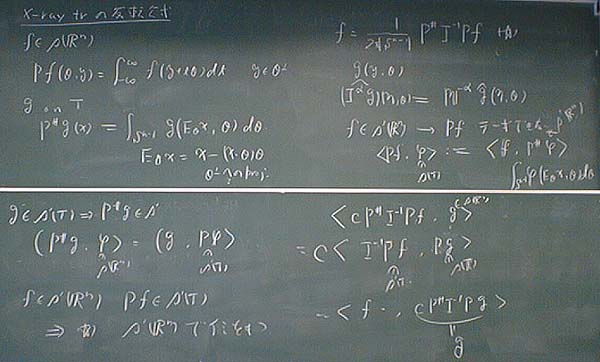 X-ray tr の反転公式
f ∈ 𝒮(Rⁿ)
Pf(θ,y) = ∫_{-∞}^{∞} f(y+tθ)dt y∈θ^⊥
g on T
P^#g(x) = ∫_{S^{n-1}} g(E_θx, θ)dθ
E_θx = x - (x·θ)θ
f = 1/(2π|S^{n-2}|) P^# I^{-1} Pf
g(y,θ)
(I^α g)^(η,θ) = |η|^{-α} ĝ(η,θ)
f ∈ 𝒮'(Rⁿ) → Pf
<Pf, φ> := <f, P^#φ>
∫φ(E_θx,θ)dθ
g ∈ 𝒮'(T) ⇒ P^#g ∈ 𝒮'
(P^#g, φ> = (g, Pφ>
𝒮(Rⁿ) 𝒮(T)
f ∈ 𝒮'(Rⁿ) Pf ∈ 𝒮'(T)
⇒ 𝒮'(Rⁿ)で
<cP^#I^{-1}Pf, g>
= c<I^{-1}Pf, Pg>
= <f, cP^#I^{-1}Pg>
g